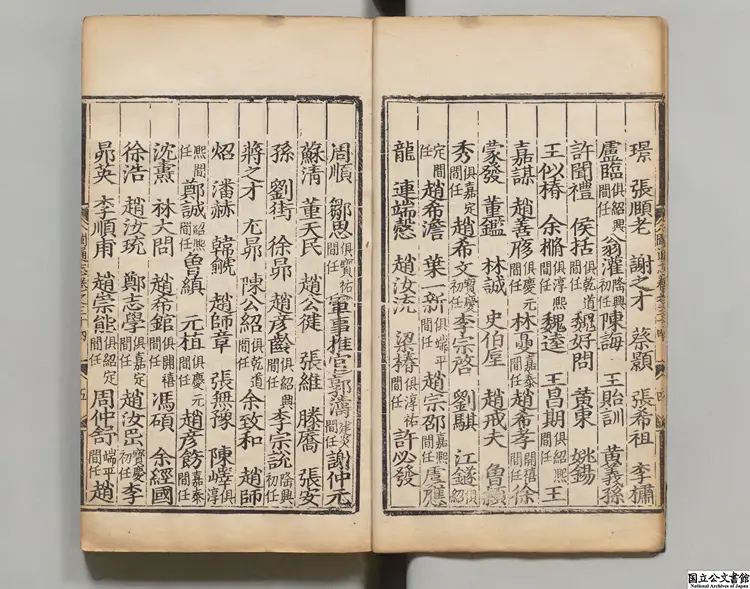 璟 張願老 謝之才 蔡顥 張希祖 李𤣎
盧臨俱紹興間任 翁灌隆興間任 陳誨 王貽訓 黄義孫
許聞禮 侯括俱乾道間任 魏好問 黄東 姚鍚
王似椿 余檞俱淳熙間任 魏逵 王昌期俱紹熙間任 王
嘉謀 趙善俢俱慶元間任 林嘉泰間任 趙希孝開禧間任 徐
蒙發 董鑑 林誠 史伯厔 趙戒夫 魯穎
秀俱嘉定間任 趙希文寳慶初任 李宗啓 劉騏 江鐩俱紹
定間任 趙希澹 葉一新俱端平間任 趙宗邵嘉熙間任 虞應
龍 連端慤 趙汝㳅 梁椿俱淳祐間任 許必發
周順 鄒思俱寳祐間任 軍事推官 郭蕅建炎間任 謝仲元
蘇清 董天民 趙公徙 張維 滕廥 張安
孫 劉街 徐昴 趙彦齡俱紹興間任 李宗說隆興初任
蔣之才 尤昴 陳公紹俱乾道間任 余致和 趙師
炤 潘赫 韓虩 趙師𦍒 張無豫 陳嶧俱淳
熙間任 鄭誠紹熙間任 魯縝 元植俱慶元間任 趙彦飭嘉泰間任
沈燾 林大問 趙希錧俱開禧間任 馮碩 余經國
徐浩 趙汝珫 鄭志學俱嘉定間任 趙汝𡊮寳慶初任 李
昴英 李順甫 趙崇能俱紹定間任 周仲夸端平間任 趙
國立公文書館
National Archives of Japan